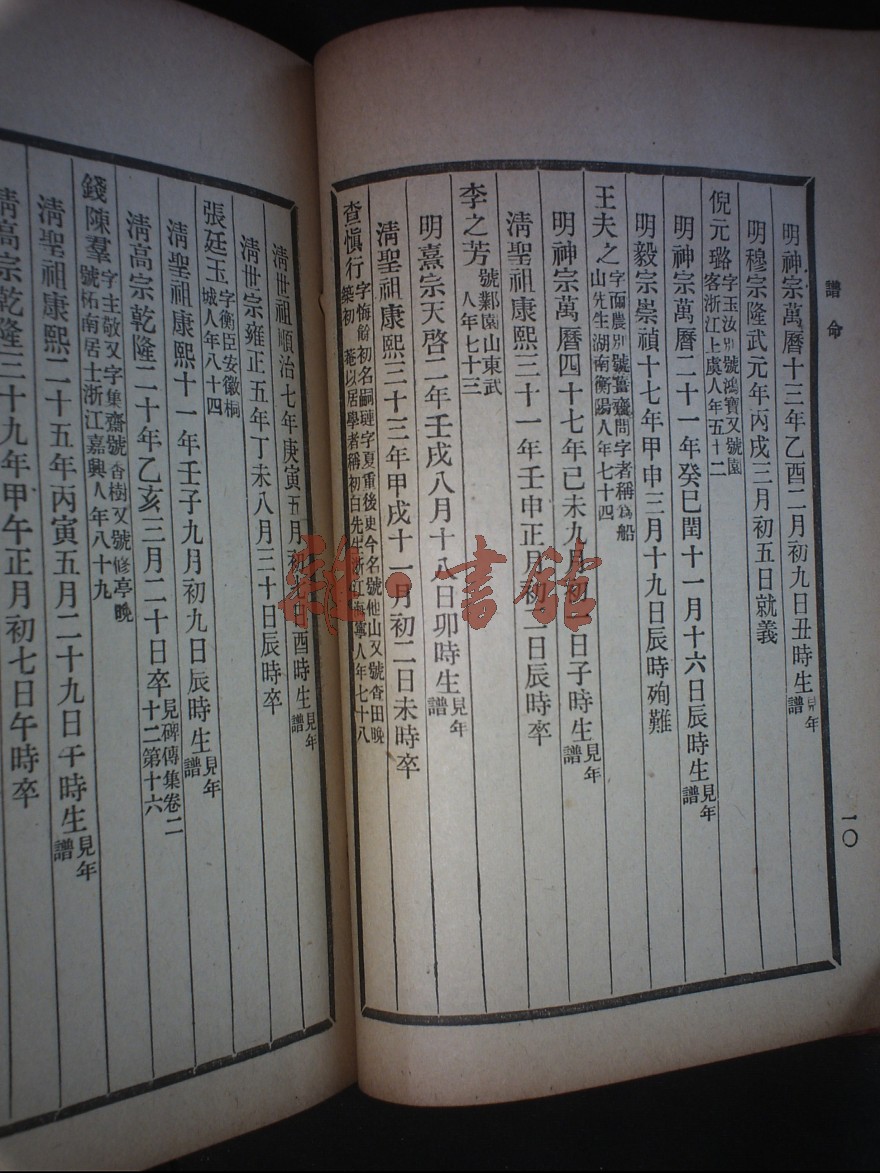 譜命
一〇
明神宗萬曆十三年乙酉二月初九日丑時生見年譜
明穆宗隆武元年丙戌三月初五日就義
倪元璐字玉汝別號鴻寶又號園客浙江上虞人年五十二
明神宗萬曆二十一年癸巳閏十一月十六日辰時生見年譜
明毅宗崇禎十七年甲申三月十九日辰時殉難
王夫之字而農別號薑齋問字者稱爲船山先生湖南衡陽人年七十四
明神宗萬曆四十七年己未九月初一日子時生見年譜
清聖祖康熙三十一年壬申正月初二日辰時卒
李之芳號鄴園山東武人年七十三
明熹宗天啓二年壬戌八月十八日卯時生見年譜
清聖祖康熙三十三年甲戌十一月初二日未時卒
查愼行字悔餘初名嗣璉字夏重後更今名號他山又號查田晚築初菴以居學者稱初白先生浙江海寧人年七十八
清世祖順治七年庚寅五月初七日酉時生見年譜
清世宗雍正五年丁未八月三十日辰時卒
張廷玉字衡臣安徽桐城人年八十四
清聖祖康熙十一年壬子九月初九日辰時生見年譜
清高宗乾隆二十年乙亥三月二十日卒見碑傳集卷二十二第十六
錢陳羣字主敬又字集齋號香樹又號修亭晚號柘南居士浙江嘉興人年八十九
清聖祖康熙二十五年丙寅五月二十九日午時生見年譜
清高宗乾隆三十九年甲午正月初七日午時卒
雜·書館